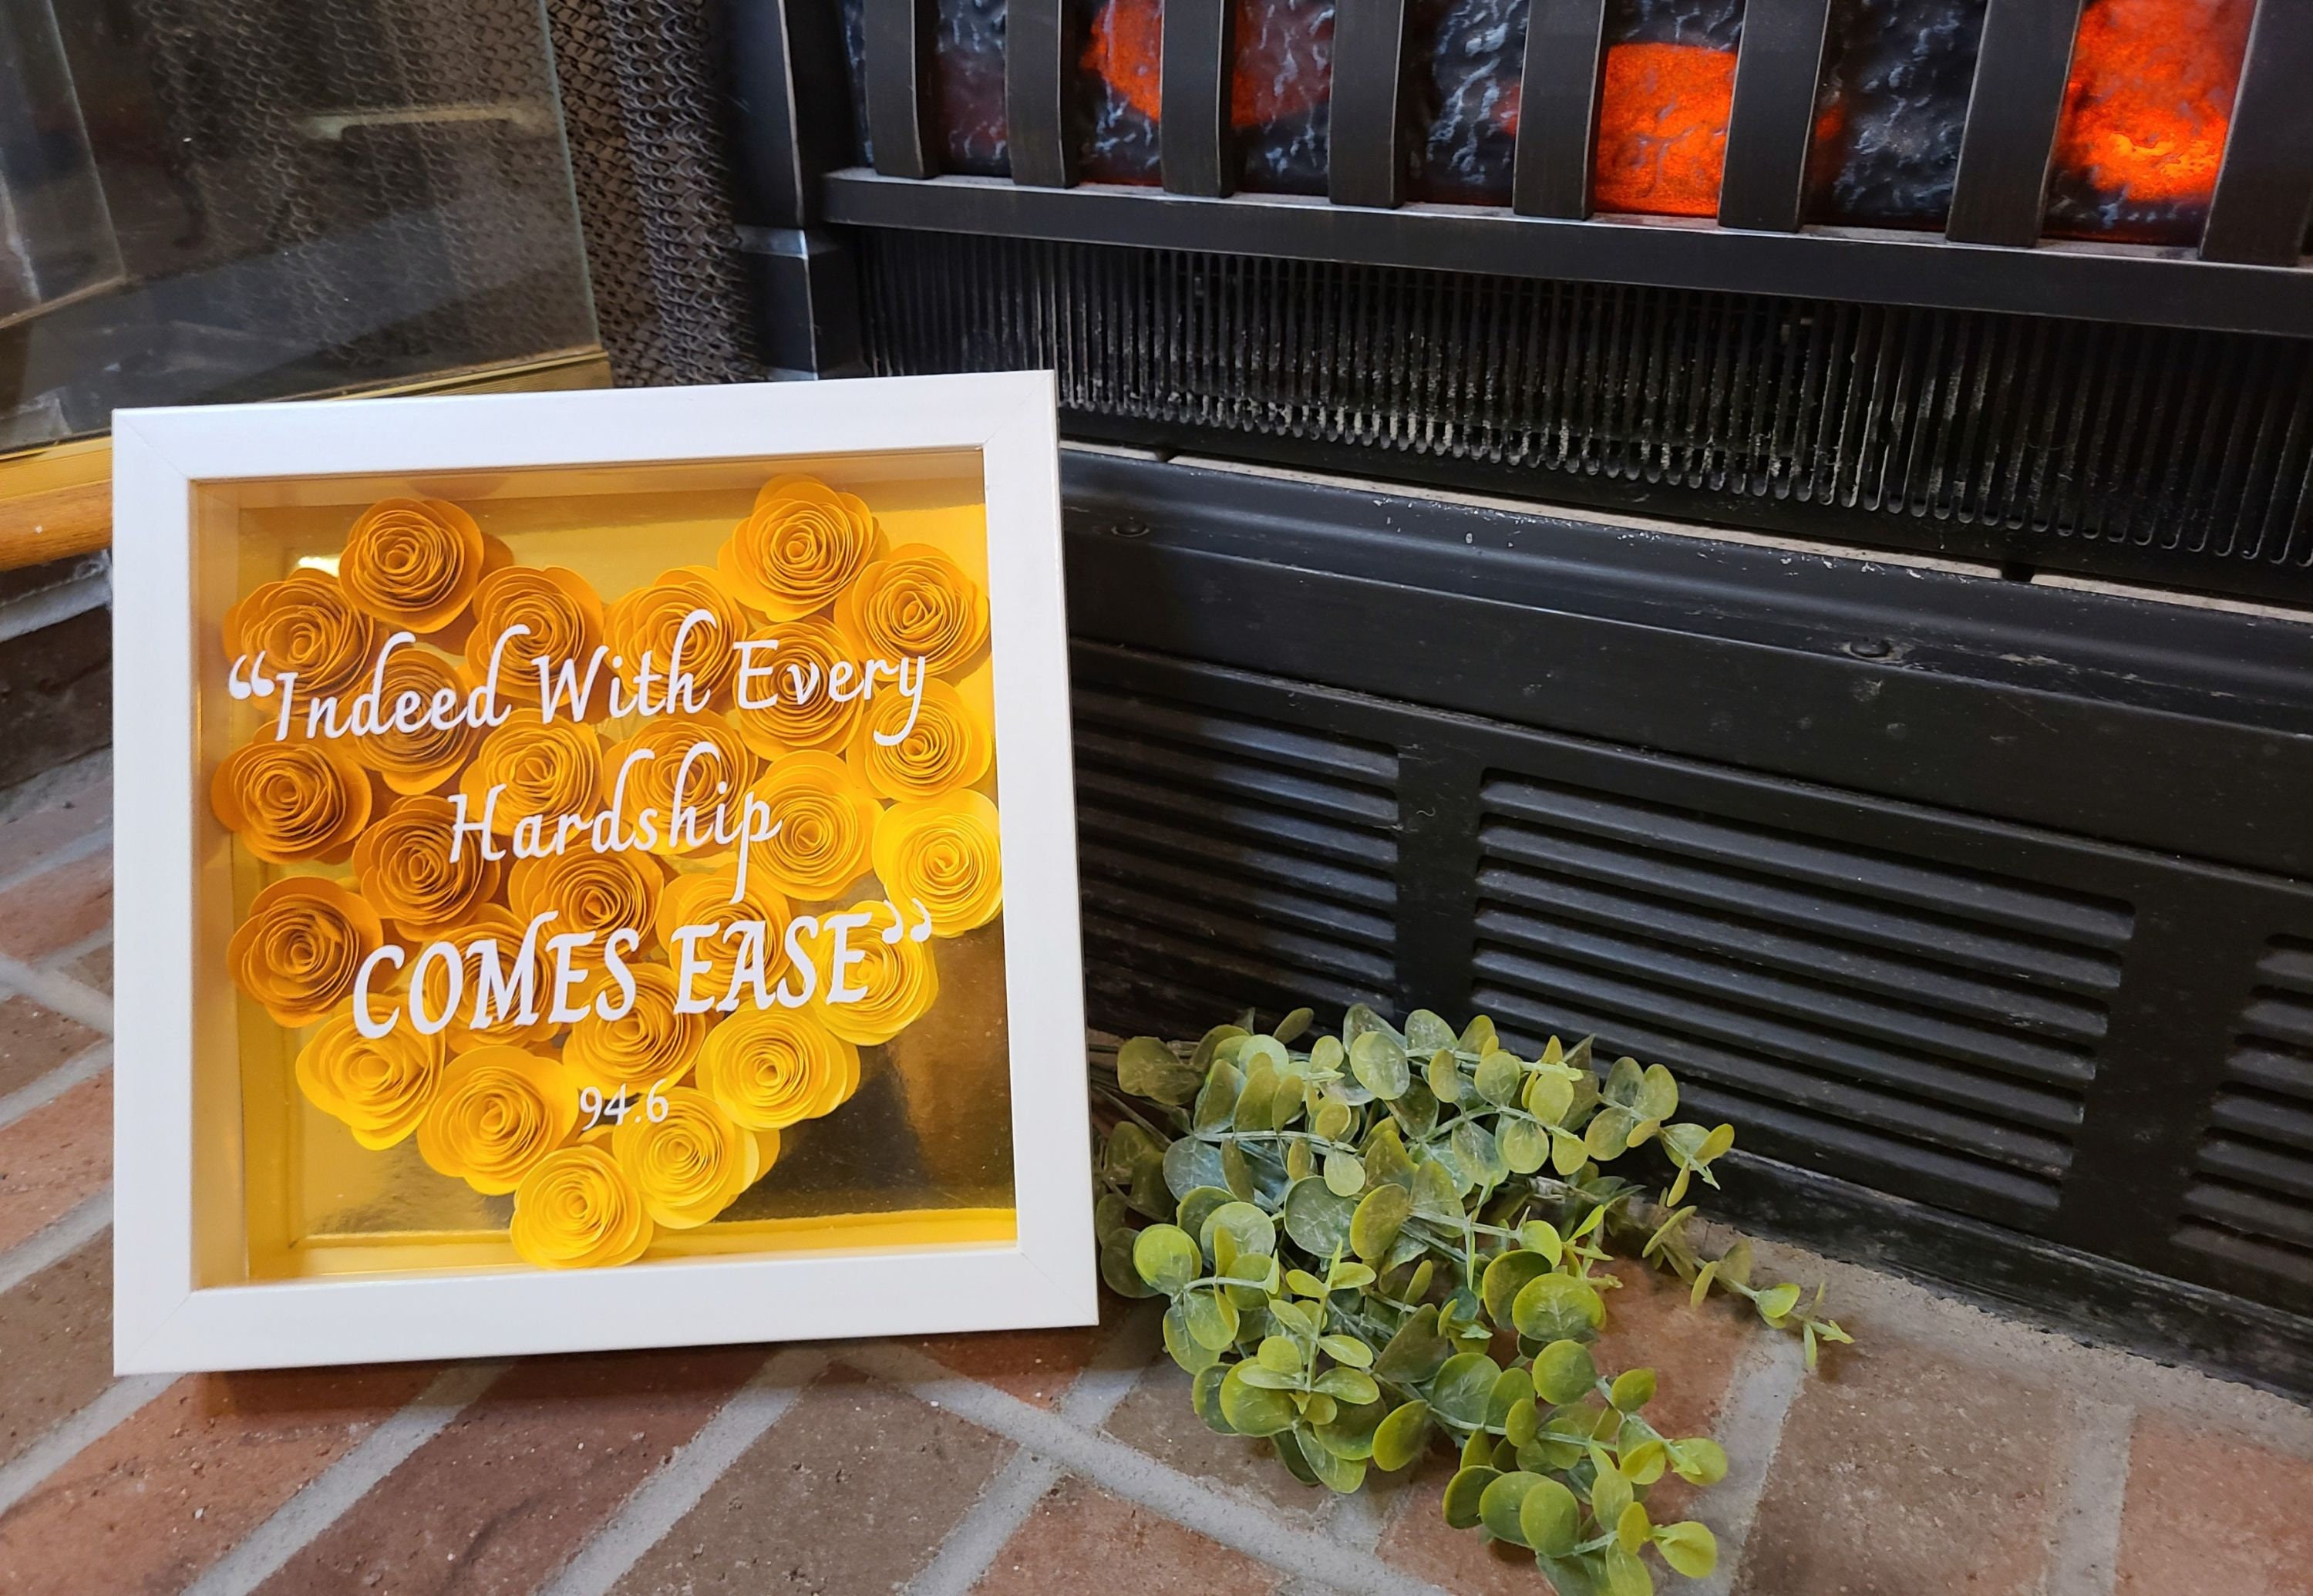 “Indeed With Every
Hardship
COMES EASE”
94.6